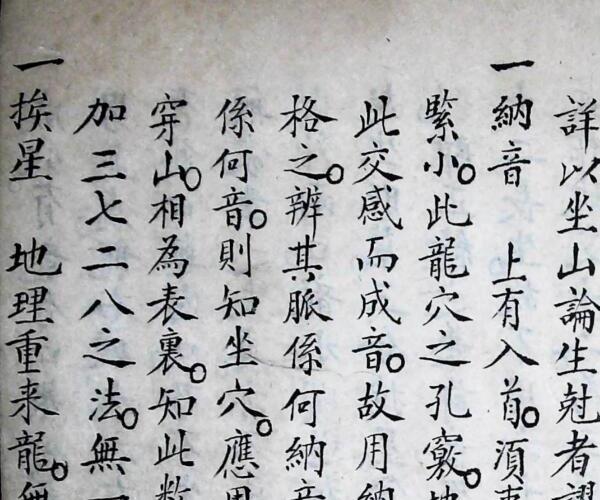 詳以坐山論生尅者謬
一納音　上有入首。須束
緊小。此龍穴之孔竅。地
此交感而成音。故用納
格之。辨其脈係何納音
係何音。則知坐穴。應用
穿山。相為表裏。知此数
加三七二八之法。無一
一挨星　地理重来龍。無